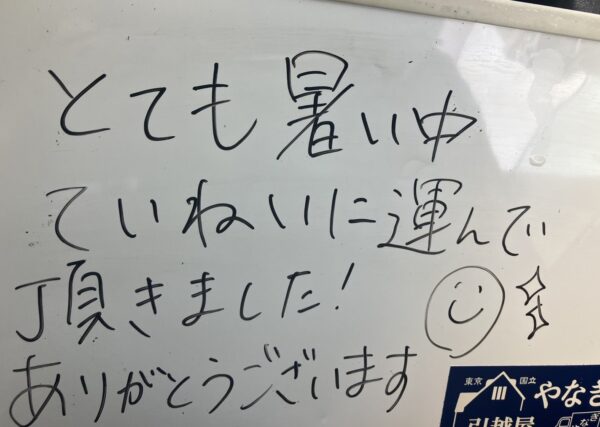 とても暑い中
ていねいに運んで
頂きました!
ありがとうございます
東京 国立
やなぎ
引越屋